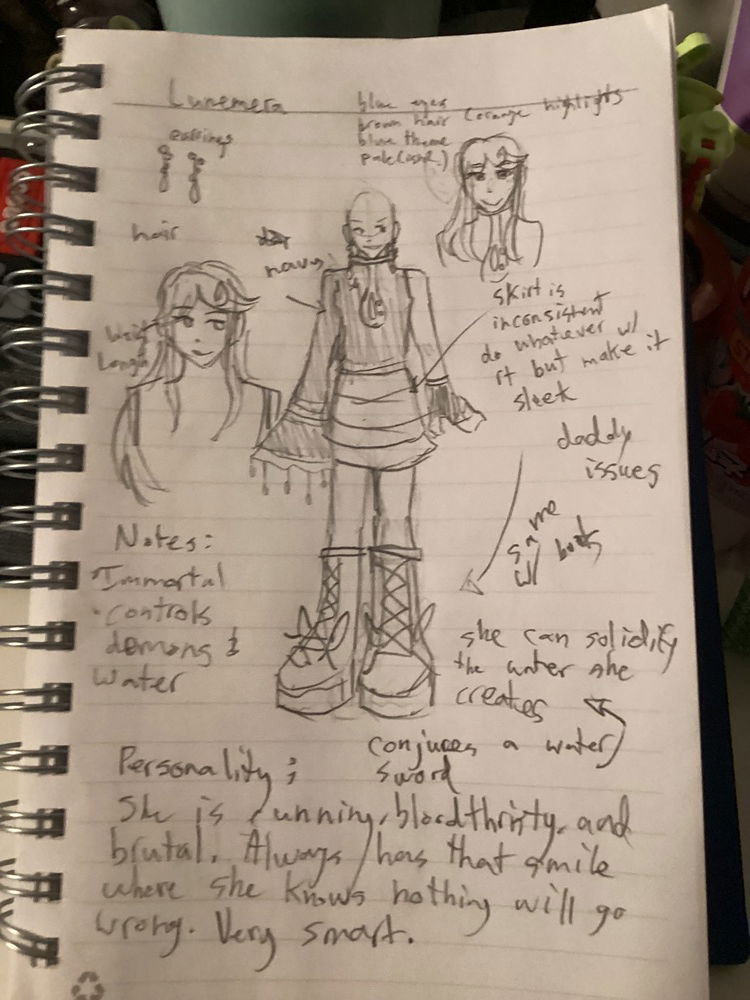 Lunemera
blue eyes
brown hair (orange highlights
blue theme
pale
earrings
hair
navy
skirt is
inconsistent
do whatever w/
it but make it
sleek
Length
daddy
issues
same
w/ boots
Notes:
•Immortal
•controls
demons &
water
she can solidify
the water she
creates
conjures a water
sword
Personality:
She is cunning, bloodthristy, and
brutal. Always has that smile
where she knows nothing will go
wrong. Very smart.